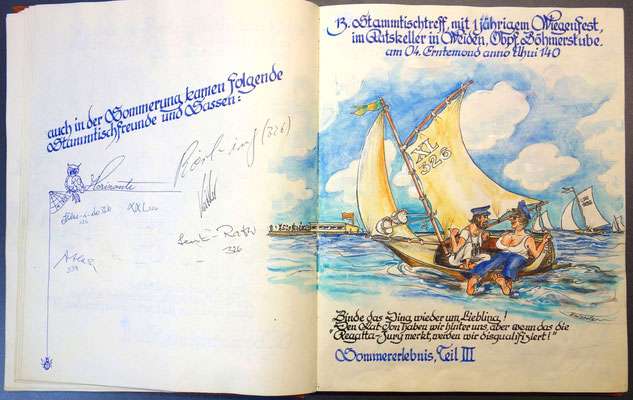 auch in der Sommerung kamen folgende
Stammtischfreunde und Sassen:
(326)
XXL 326
326
13. Stammtischtreff, mit 1jährigem Wiegenfest,
im Ratskeller in Weiden, Obpf. Böhmerstube.
am 04. Erntemond anno Uhui 140
XL
326
Binde das Ding wieder um Liebling!
"Den Kat-Jon haben wir hinter uns, aber wenn das die
Regatta-Jury merkt, werden wir disqualifiziert!"
Sommererlebnis, Teil III